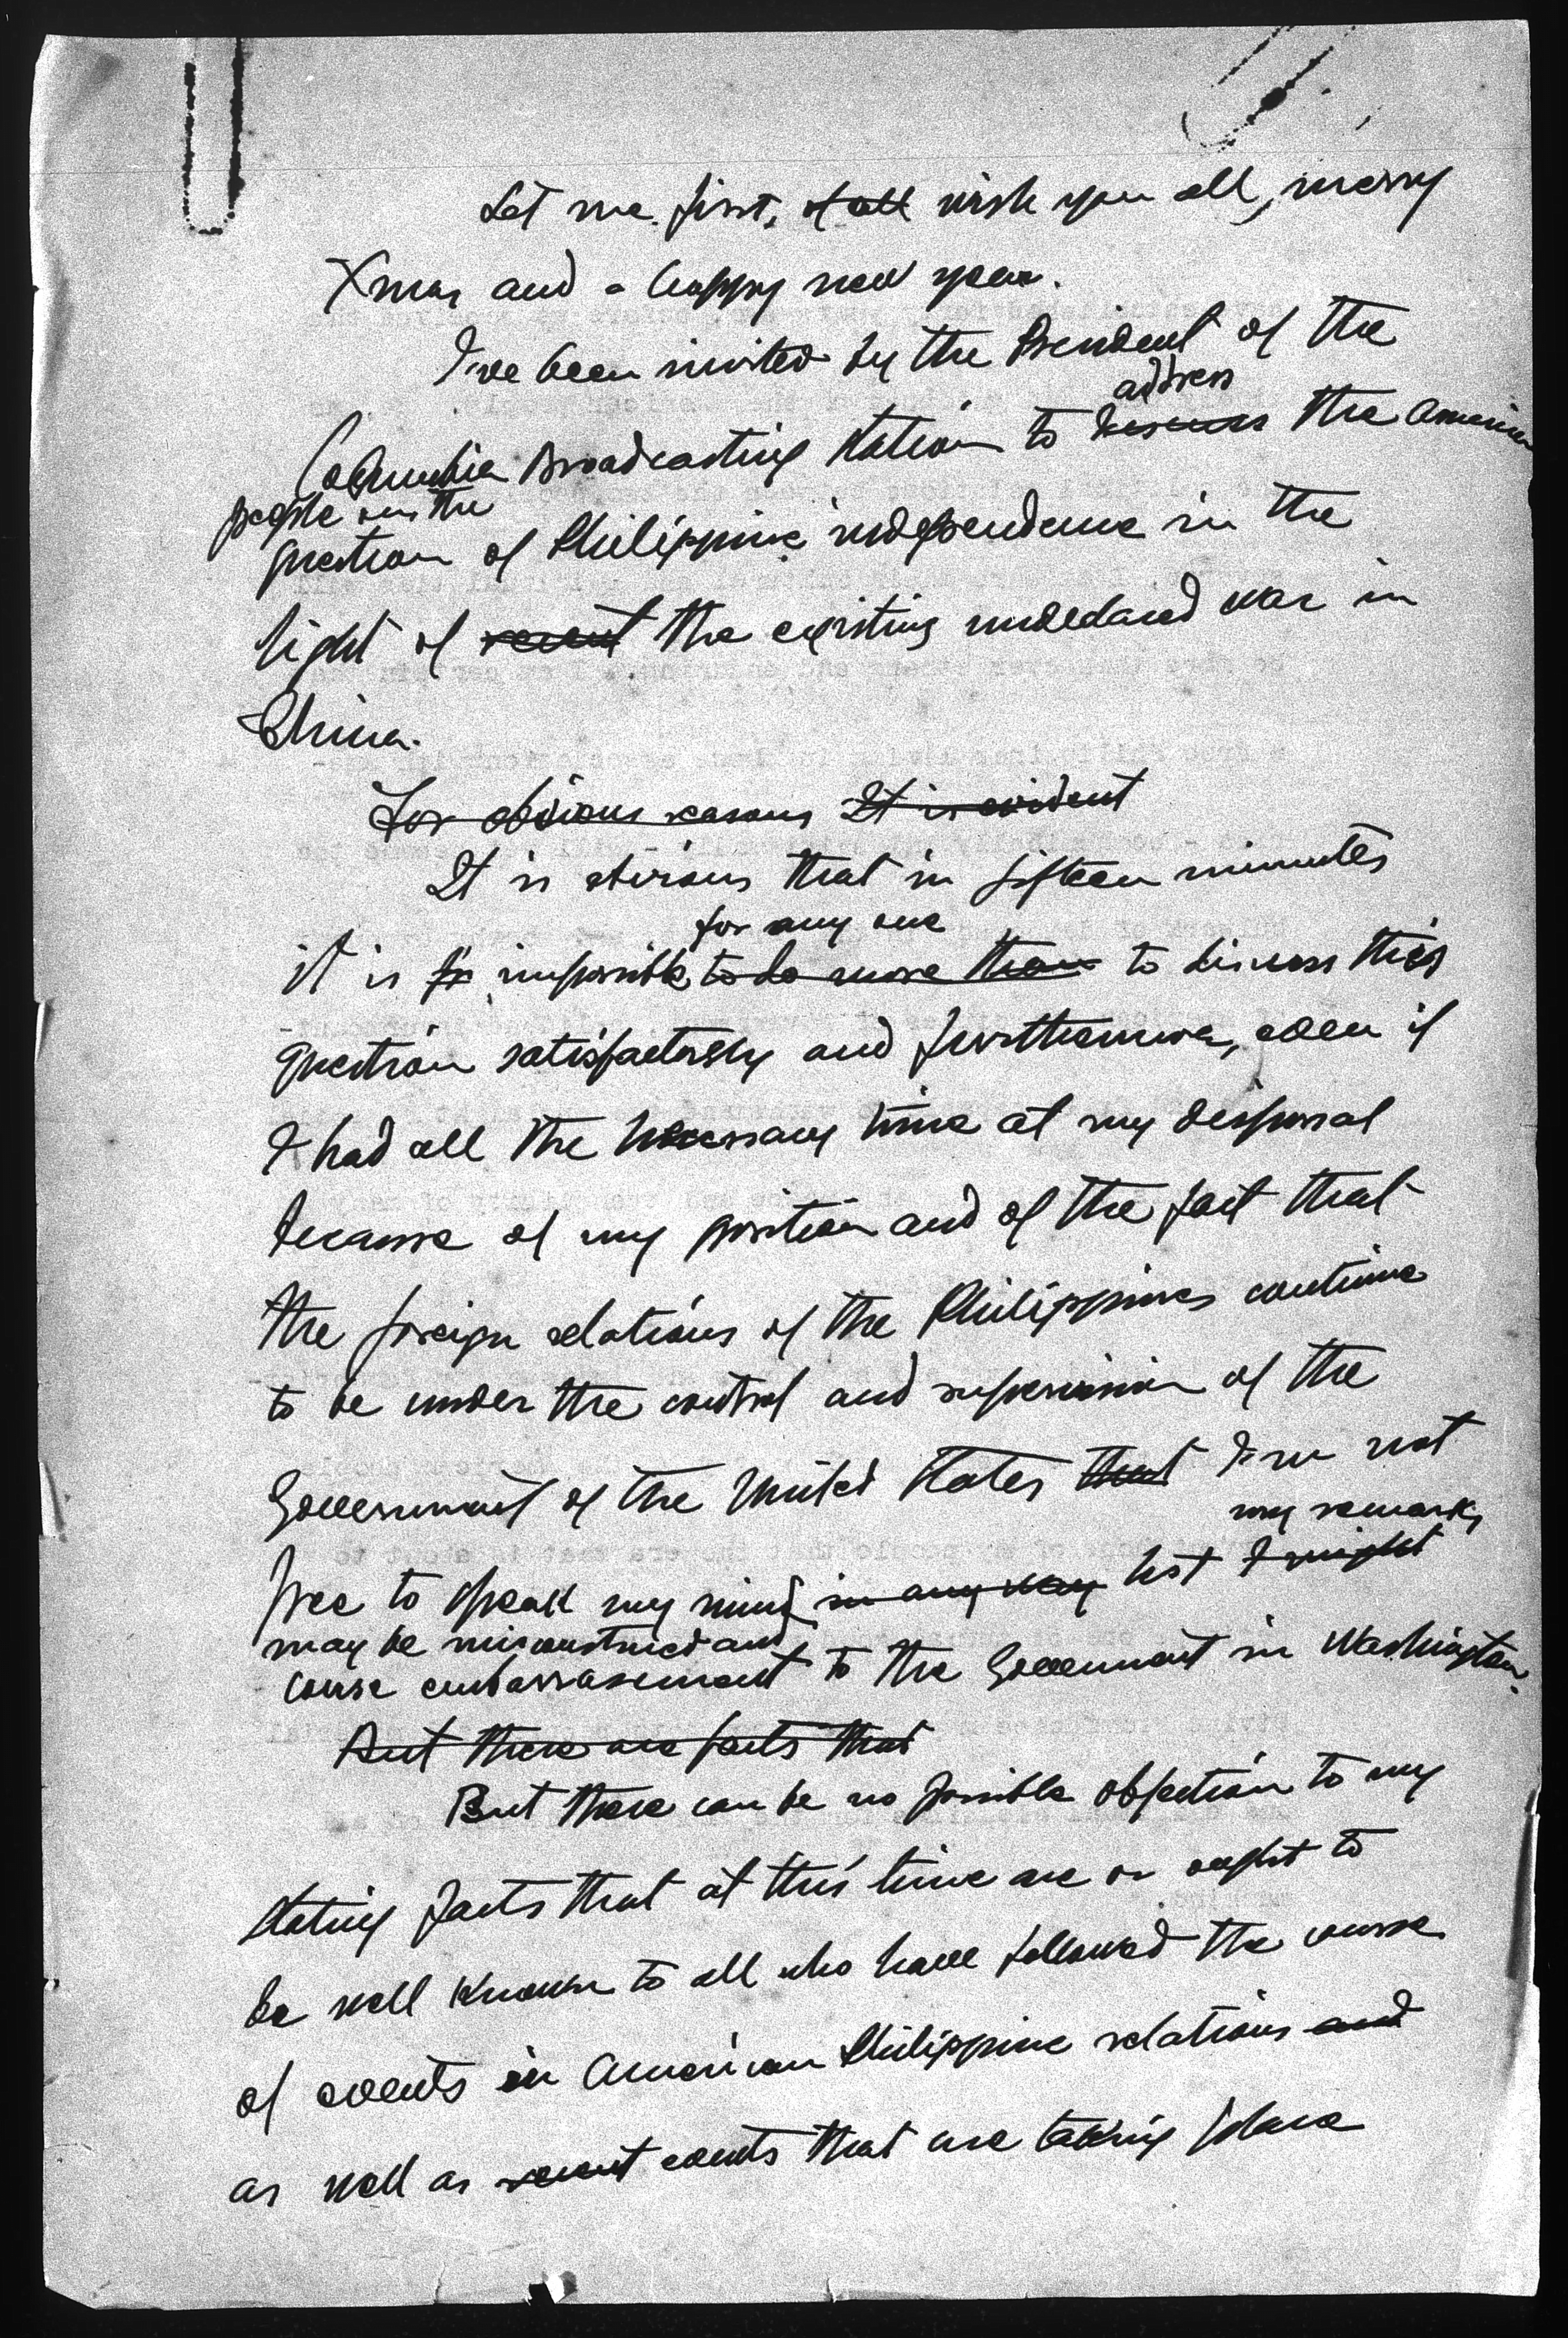 Let me first, of all wish you all, merry
Xmas and a happy new year.
I've been invited by the President of the
address
Columbia Broadcasting Station to discuss the American
people on the
question of Philippine independence in the
light of recent the existing undeclared war in
China.
For obvious reasons It is evident
It is obvious that in fifteen minutes
for any one
it is impossible to do more than to discuss this
question satisfactorily and furthermore, even if
I had all the necessary time at my disposal
because of my position and of the fact that
the foreign relations of the Philippines continue
to be under the control and supervision of the
Government of the United States that I'm not
my remarks
free to speak my mind in any way lest I might
may be misconstrued and
cause embarrasement to the Government in Washington.
But there are facts that
But there can be no possible objection to my
stating facts that at this time are or ought to
be well known to all who have followed the course
of events in American Philippine relations and
as well as recent events that are taking place